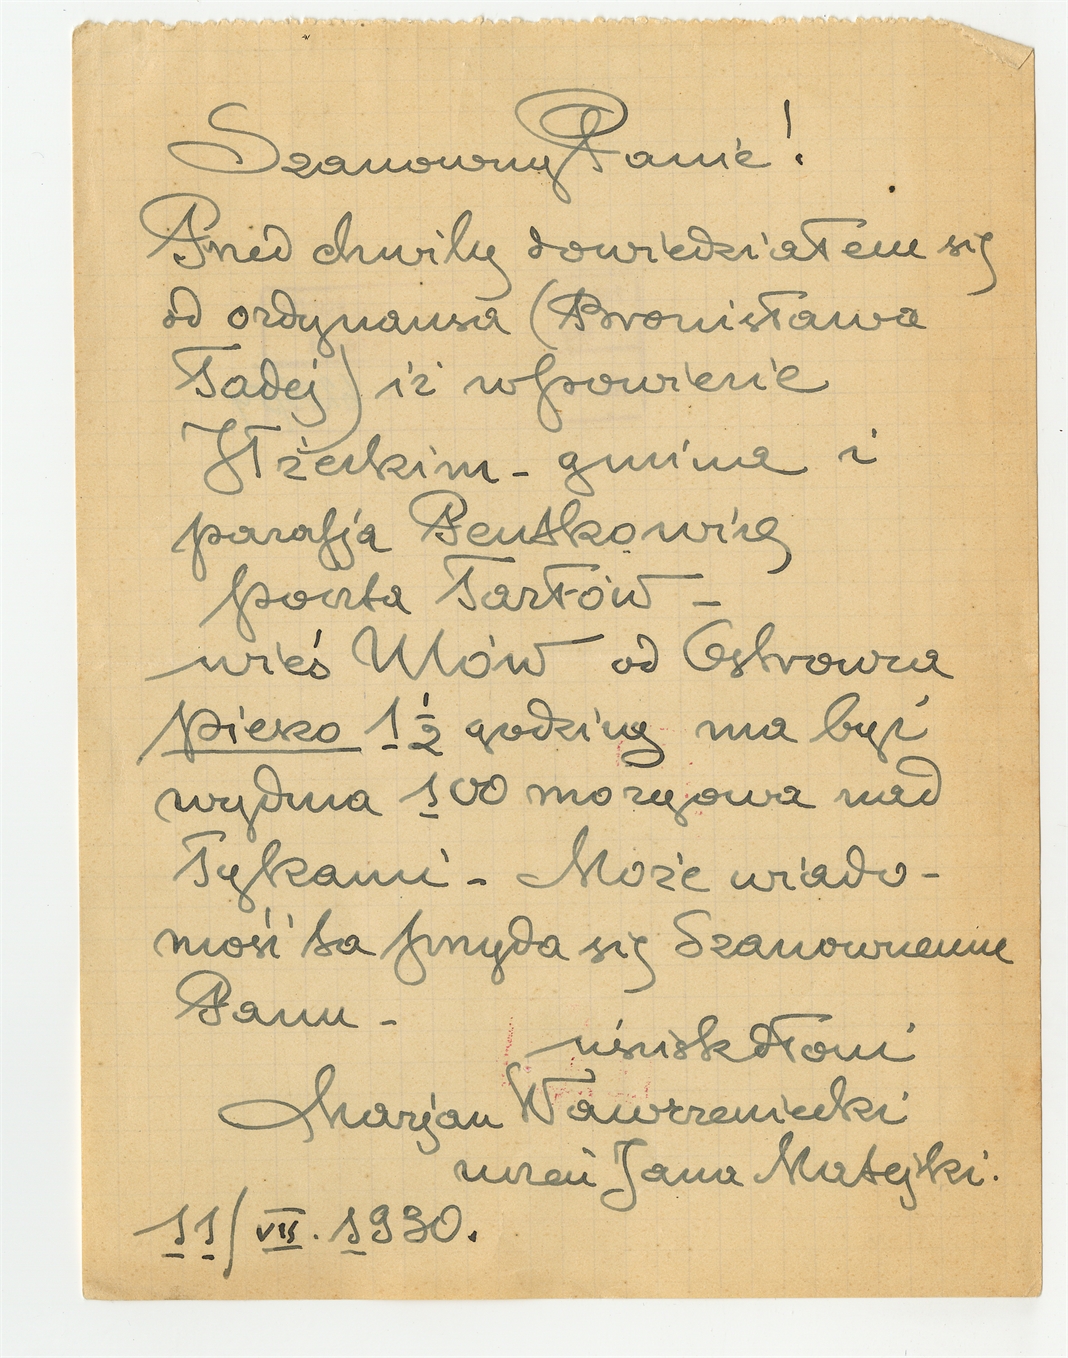 Szanowny Panie!
Przed chwilą dowiedziałem się
od ordynansa (Bronisława
Tadej) iż w powiecie
Iłżeckim - gmina i
parafja Pentkowice
poczta Tarłów -
wieś Ulów od Ostrowca
pieszo 1 1/2 godziny ma być
wydma 100 morgowa nad
Łykami - Może wiado-
mość ta przyda się Szanownemu
Panu -
uścisk dłoni
Marjan Wawrzeniecki
uczeń Jana Matejki.
11/VII. 1930.